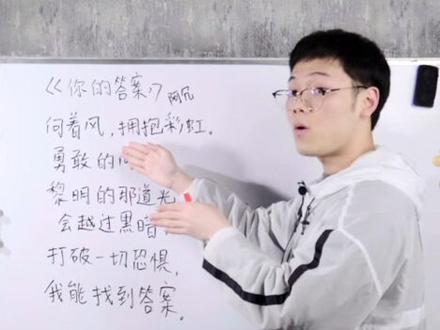 《你的答案》 阿冗
向着风，拥抱彩虹。
勇敢的向
黎明的那道光
会越过黑暗，
打破一切恐惧，
我能找到答案。